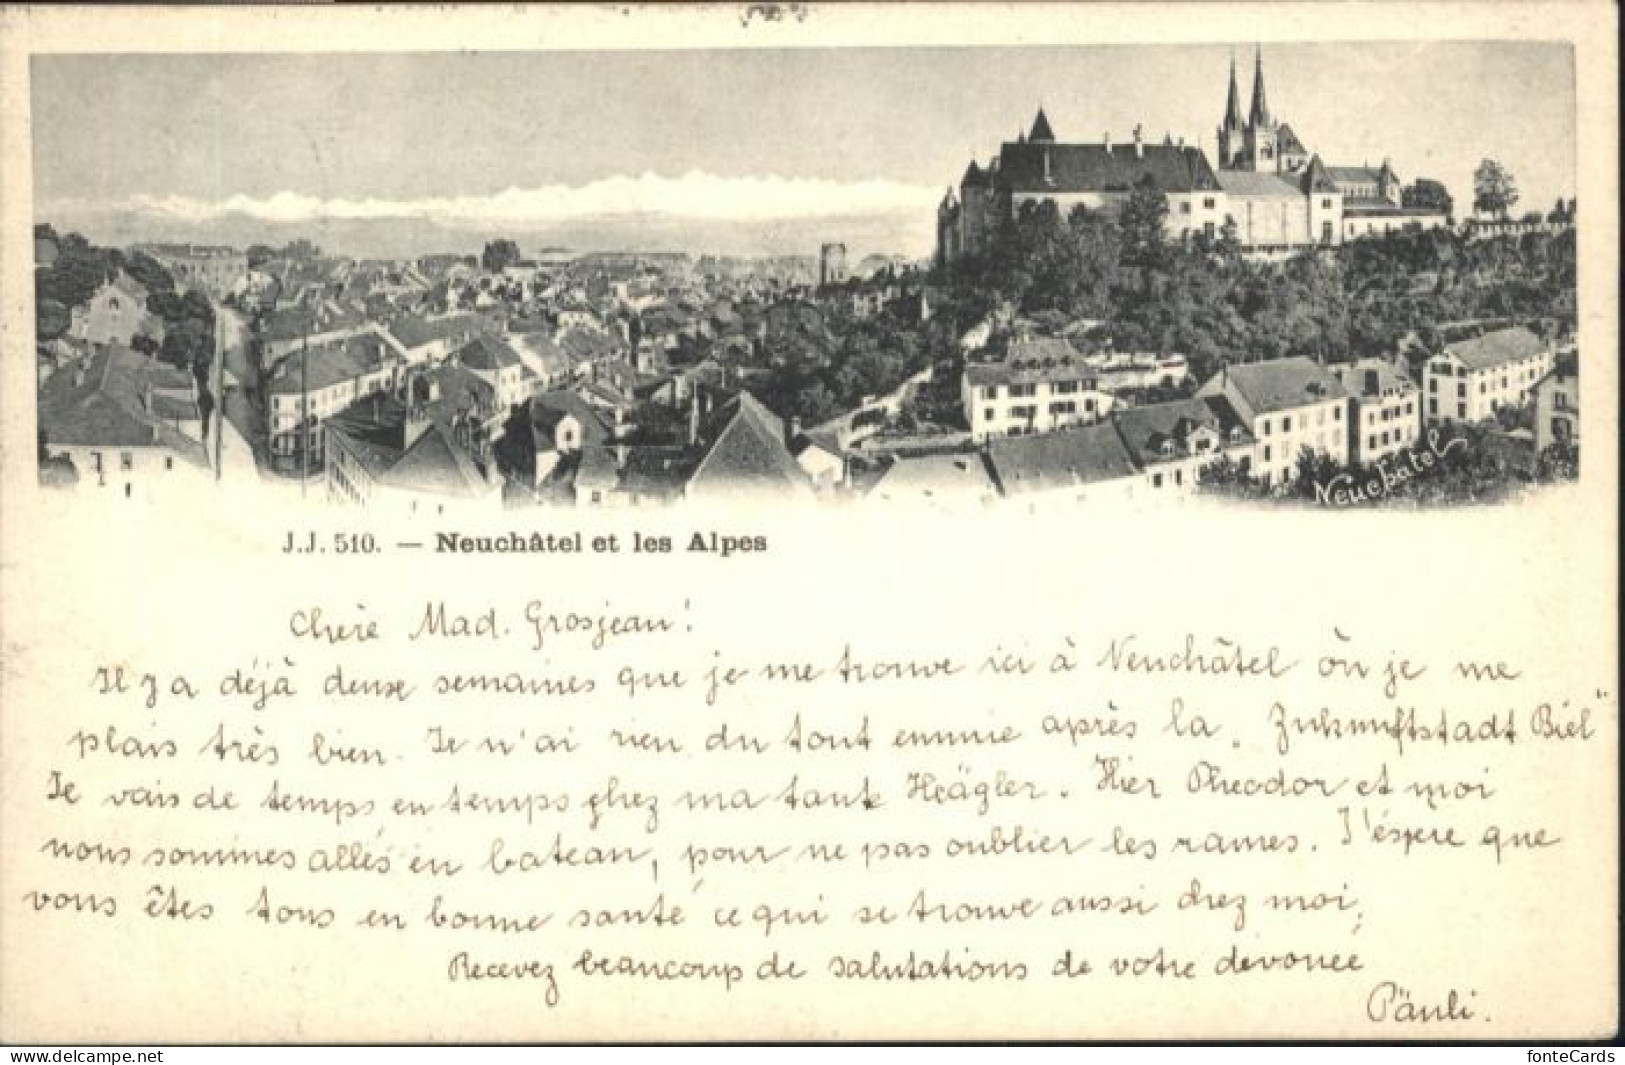 Neuchatel
J.J. 510. — Neuchâtel et les Alpes
Chère Mad. Grosjean!
Il y a déjà deux semaines que je me trouve ici à Neuchâtel où je me
plais très bien. Je n'ai rien du tout ennuie après la „Zukunftstadt Biel"
Je vais de temps en temps chez ma tante Hägler. Hier Theodor et moi
nous sommes allés en bateau, pour ne pas oublier les rames. J'éspère que
vous êtes tous en bonne santé ce qui se trouve aussi chez moi,
Recevez beaucoup de salutations de votre dévouée
Päuli.
delcampe.net
fonteCards